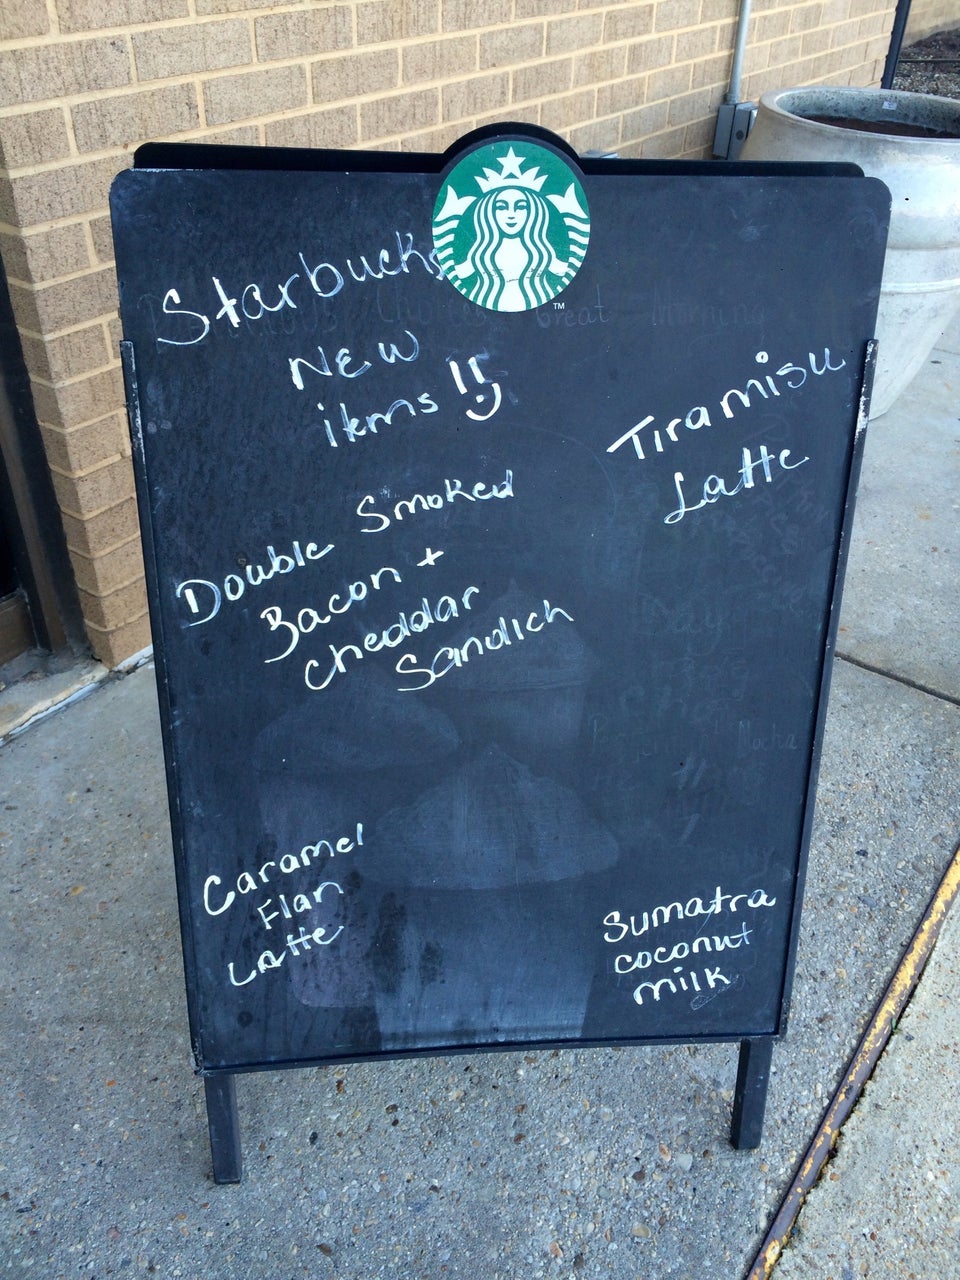 Starbucks
New
items!!
Tiramisu
Latte
Double Smoked
Bacon +
cheddar
Sandich
Caramel
Flan
Latte
Sumatra
coconut
milk
Great Morning
Mocha
TM